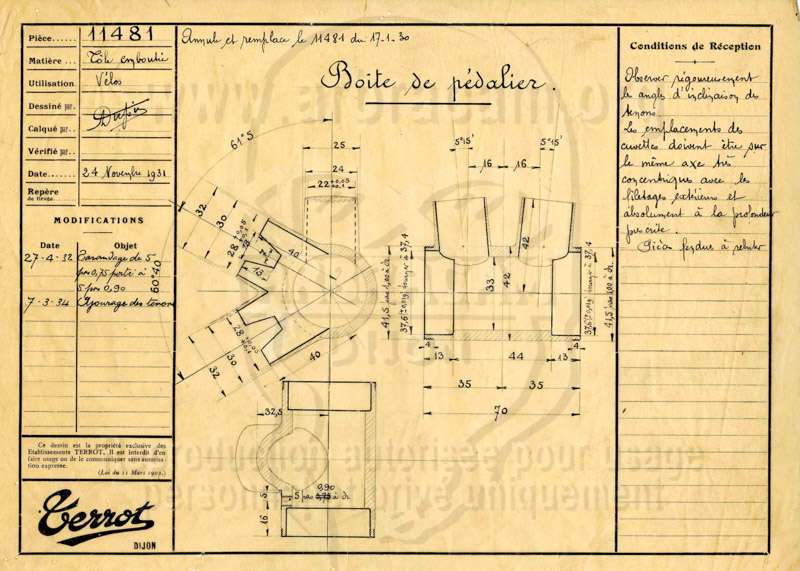 Pièce...... 11481
Matière ... Tôle emboutie
Utilisation. Vélos
Dessiné par.
Calqué par..
Vérifié par..
Date....... 24 Novembre 1931
Repère
de tirage.
MODIFICATIONS
Date Objet
27-4-32 de 5
pas 0,75 porté à
5 pas 0,90
7-3-34 Ajourage des tenons
Ce dessin est la propriété exclusive des
Etablissements TERROT. Il est interdit d'en
faire usage ou de le communiquer sans autorisa-
tion expresse.
(Loi du 11 Mars 1902.)
Terrot
DIJON
Annule et remplace le 11481 du 17-1-30
Boîte de pédalier.
61°5
25
24
22 +0,05 +0,1
32
30
28
13
40
60°40'
28
13
30
32
40
5°15'
5°15'
16
16
42
33
42
41,5 pas 1,00 à dr.
37,6 mangé à 37,4
37,6 mangé à 37,4
41,5 pas 1,00 à dr.
4
4
13
44
13
35
35
70
32,5
0,90
5 pas 0,75 à dr.
5
16
Conditions de Réception
Observer rigoureusement
les angles d'inclinaison des
tenons.
Les emplacements des
cuvettes doivent être sur
le même axe très
concentriques avec les
filetages extérieurs et
absolument à la profondeur
prescrite.
Pièces fendues à rebuter